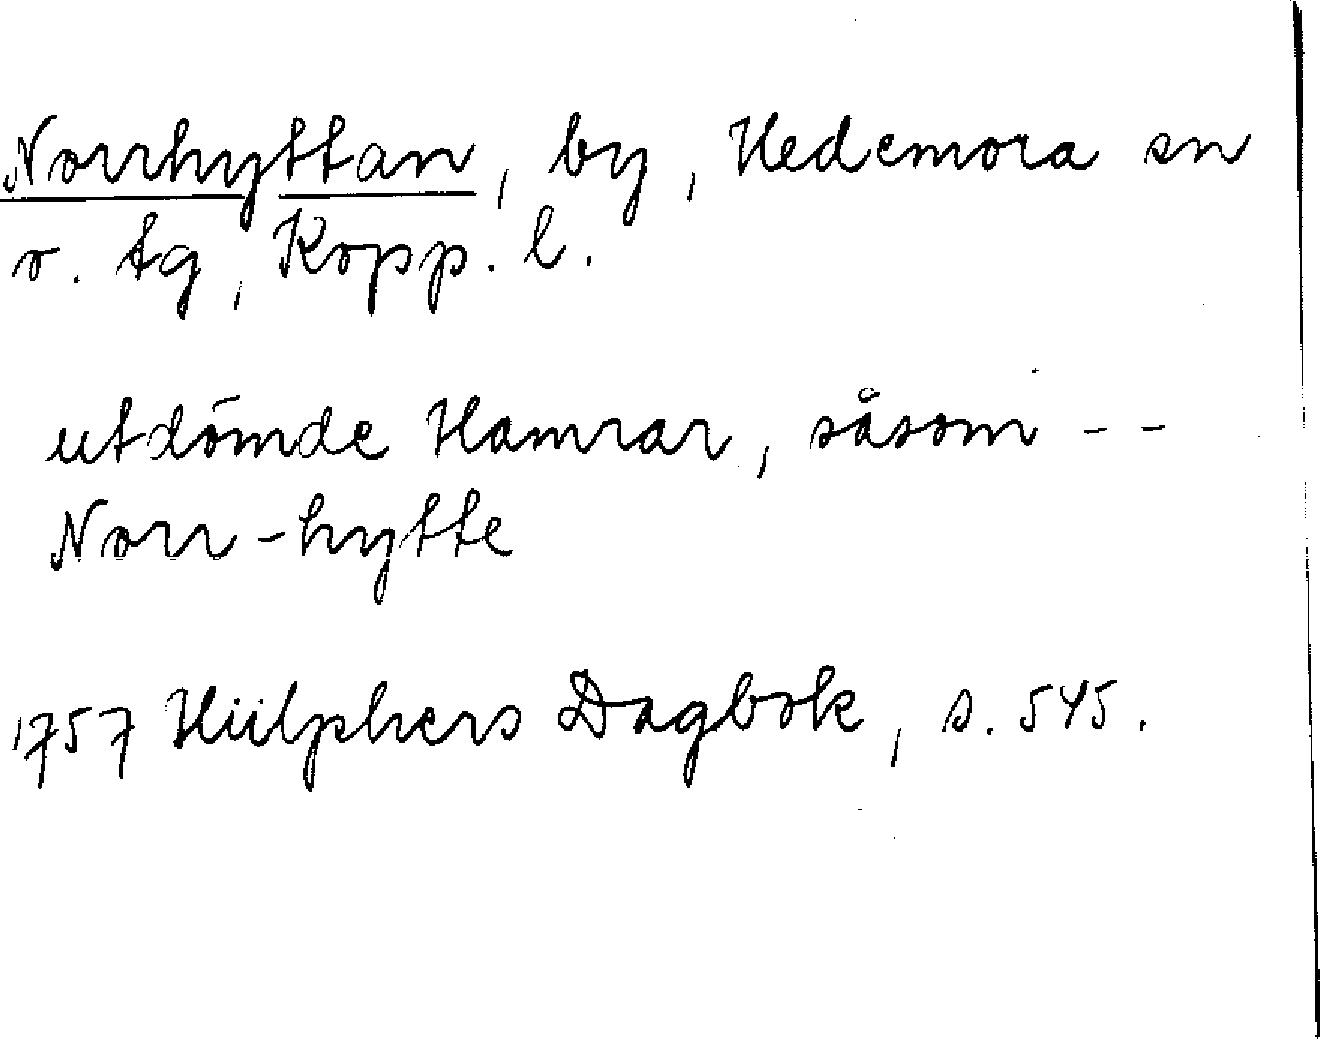 Norrhyttan, by, Hedemora sn
o. tg, Kopp. l.
utdömde Hamrar, såsom - -
Norr-hytte
1757 Hülphers Dagbok, s. 545.